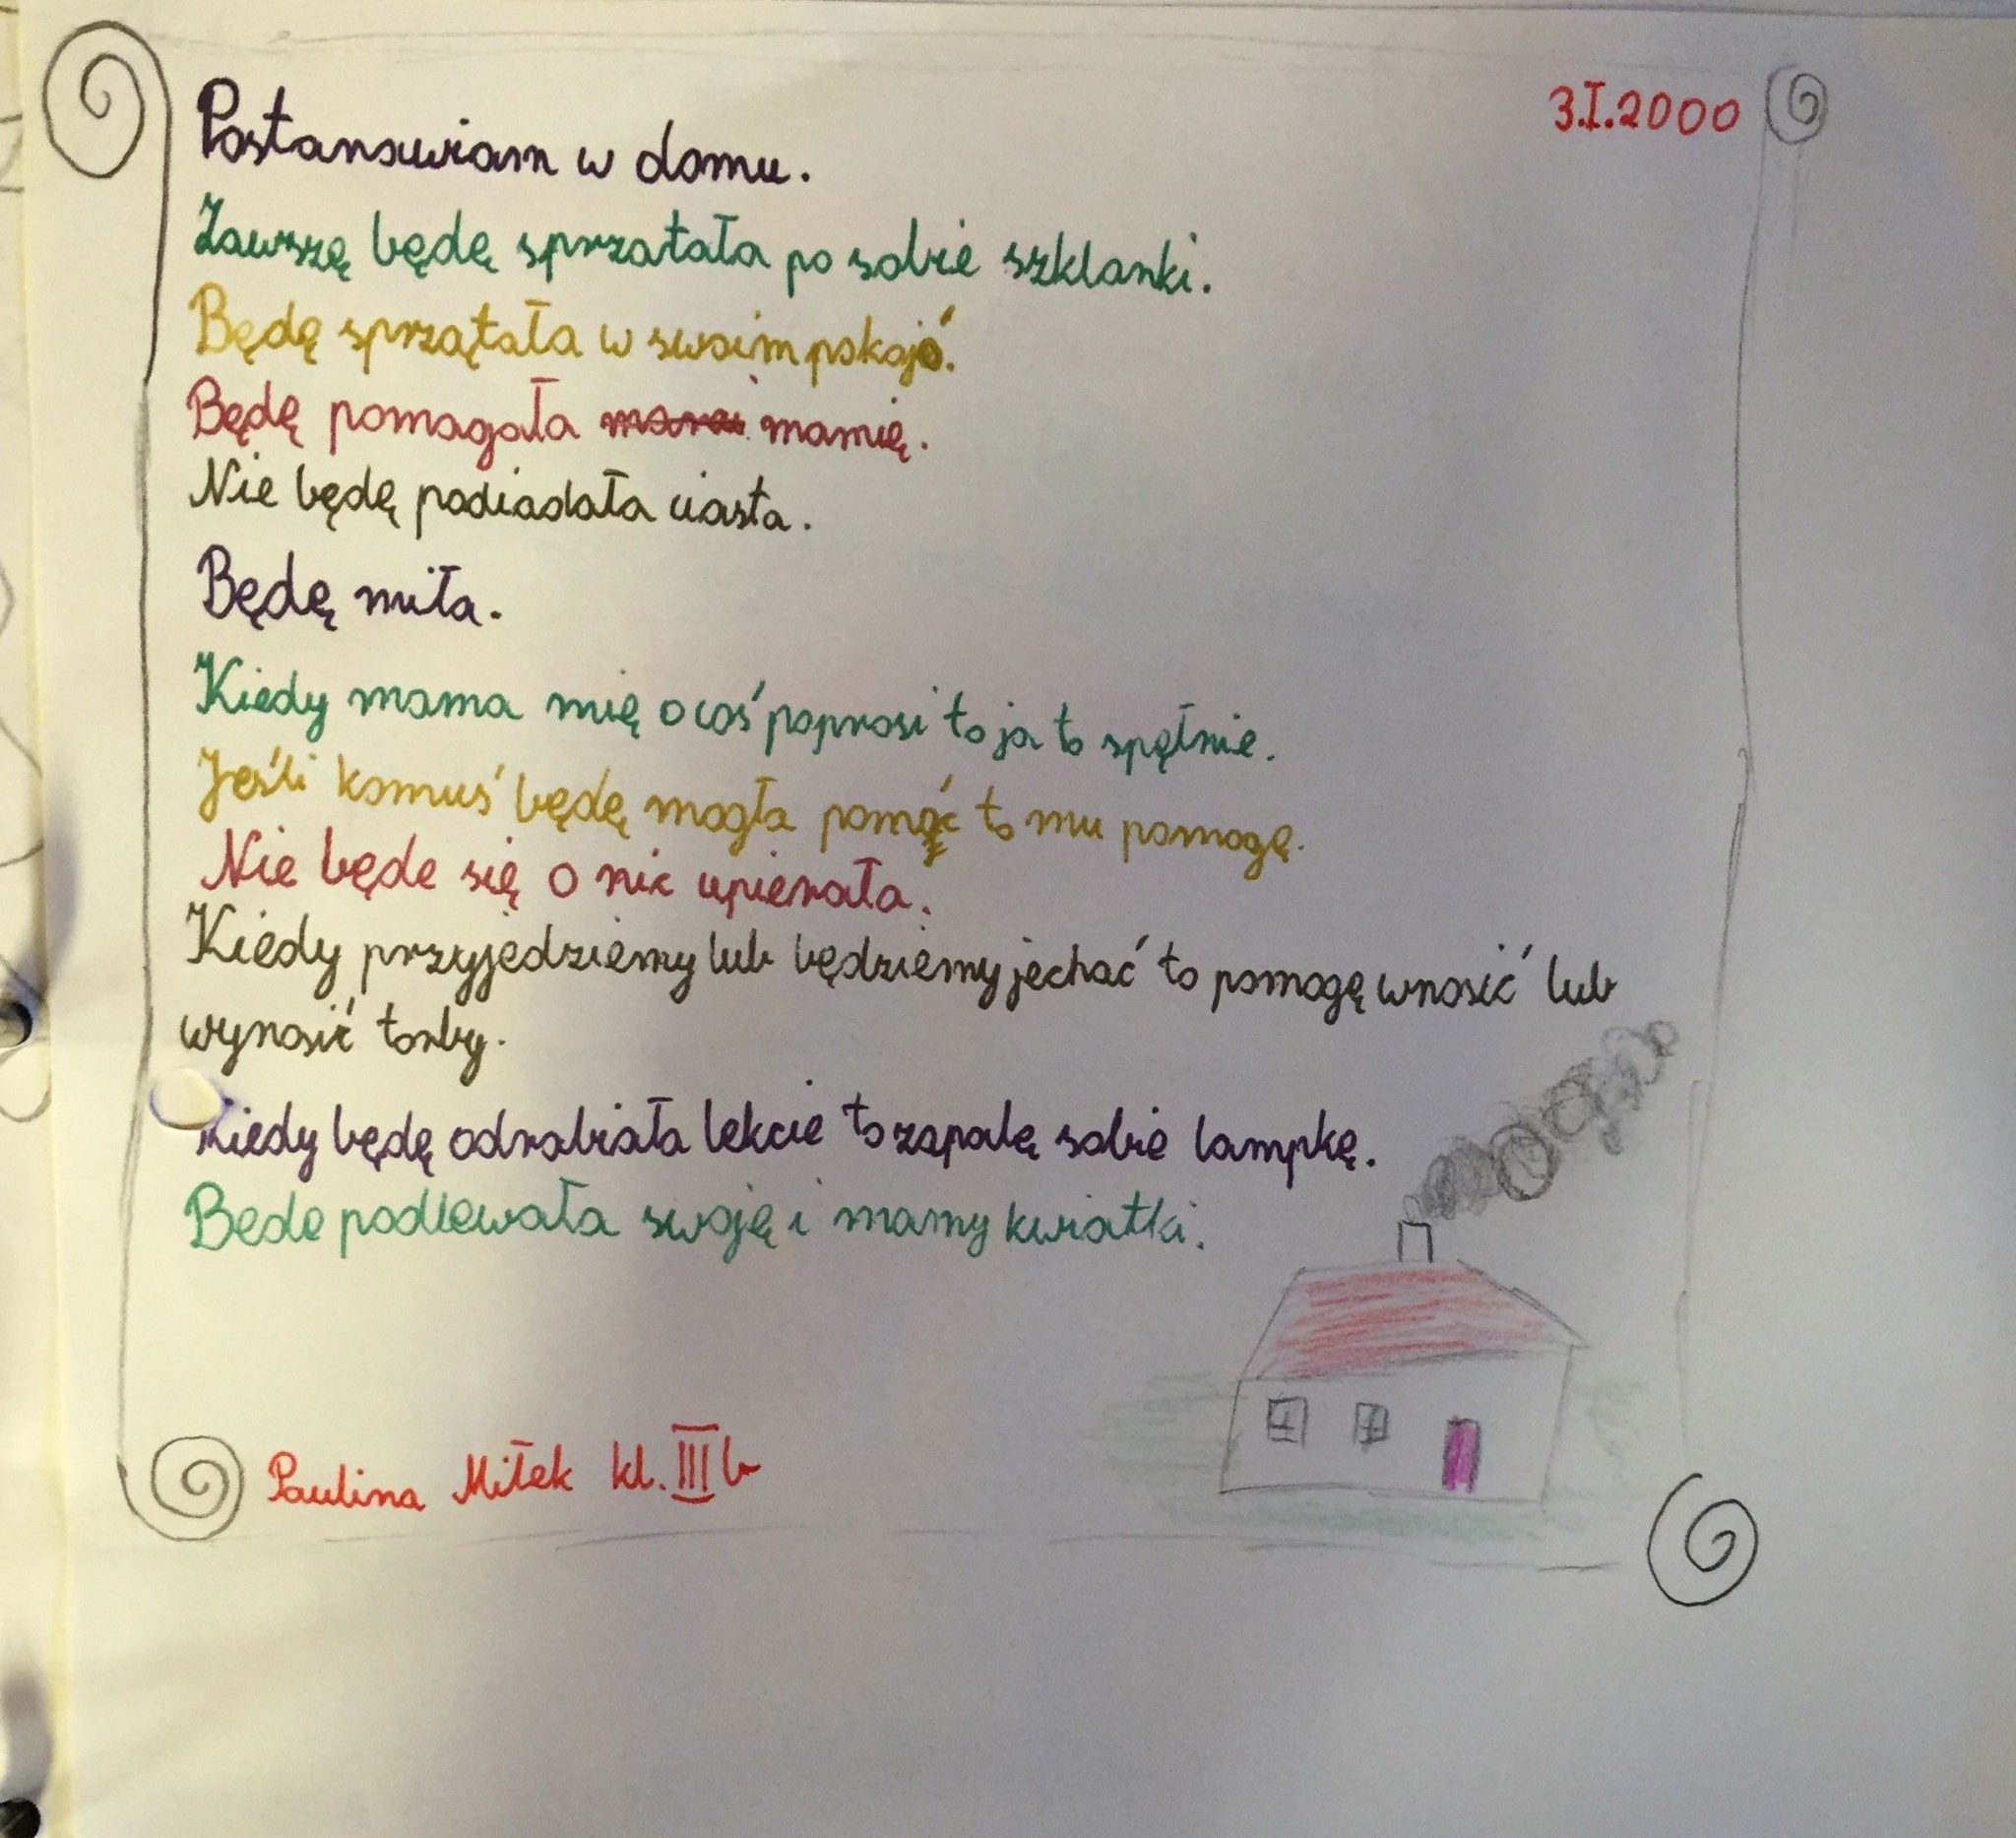 3.I.2000
Postanawiam w domu.
Zawszę będę sprzatała po sobie szklanki.
Będę sprzątała w swoim pokojó.
Będę pomagała mamię.
Nie będę podiadała ciasta.
Będę miła.
Kiedy mama mię o coś poprosi to ja to spęłnie.
Jeśli komuś będę mogła pomóc to mu pomogę.
Nie będe się o nic upierała.
Kiedy przyjedziemy lub będziemy jechać to pomogę wnosić lub
wynosić torby.
Kiedy będę odrabiała lekcie to zapalę sobie lampkę.
Bede podlewała swoję i mamy kwiatki.
Paulina Miłek kl. III b